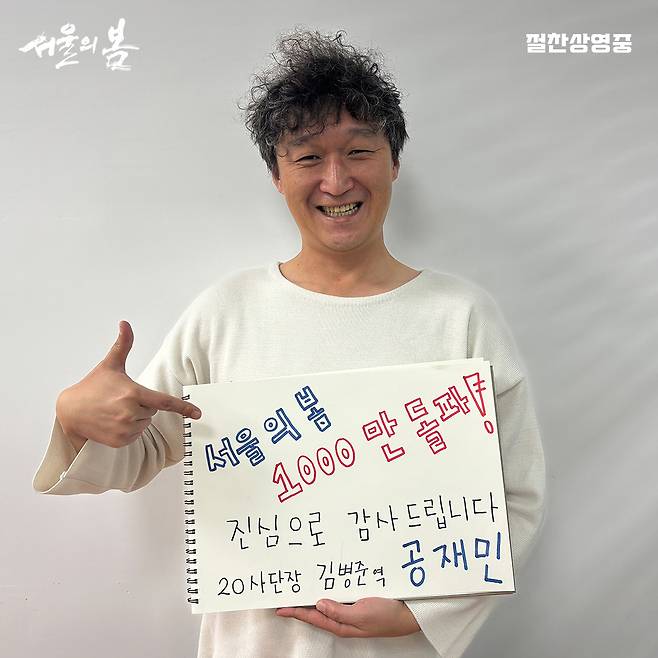 서울의 봄
절찬상영중
서울의 봄
1000 만 돌파!
진심으로 감사드립니다
20사단장 김병준역 공재민